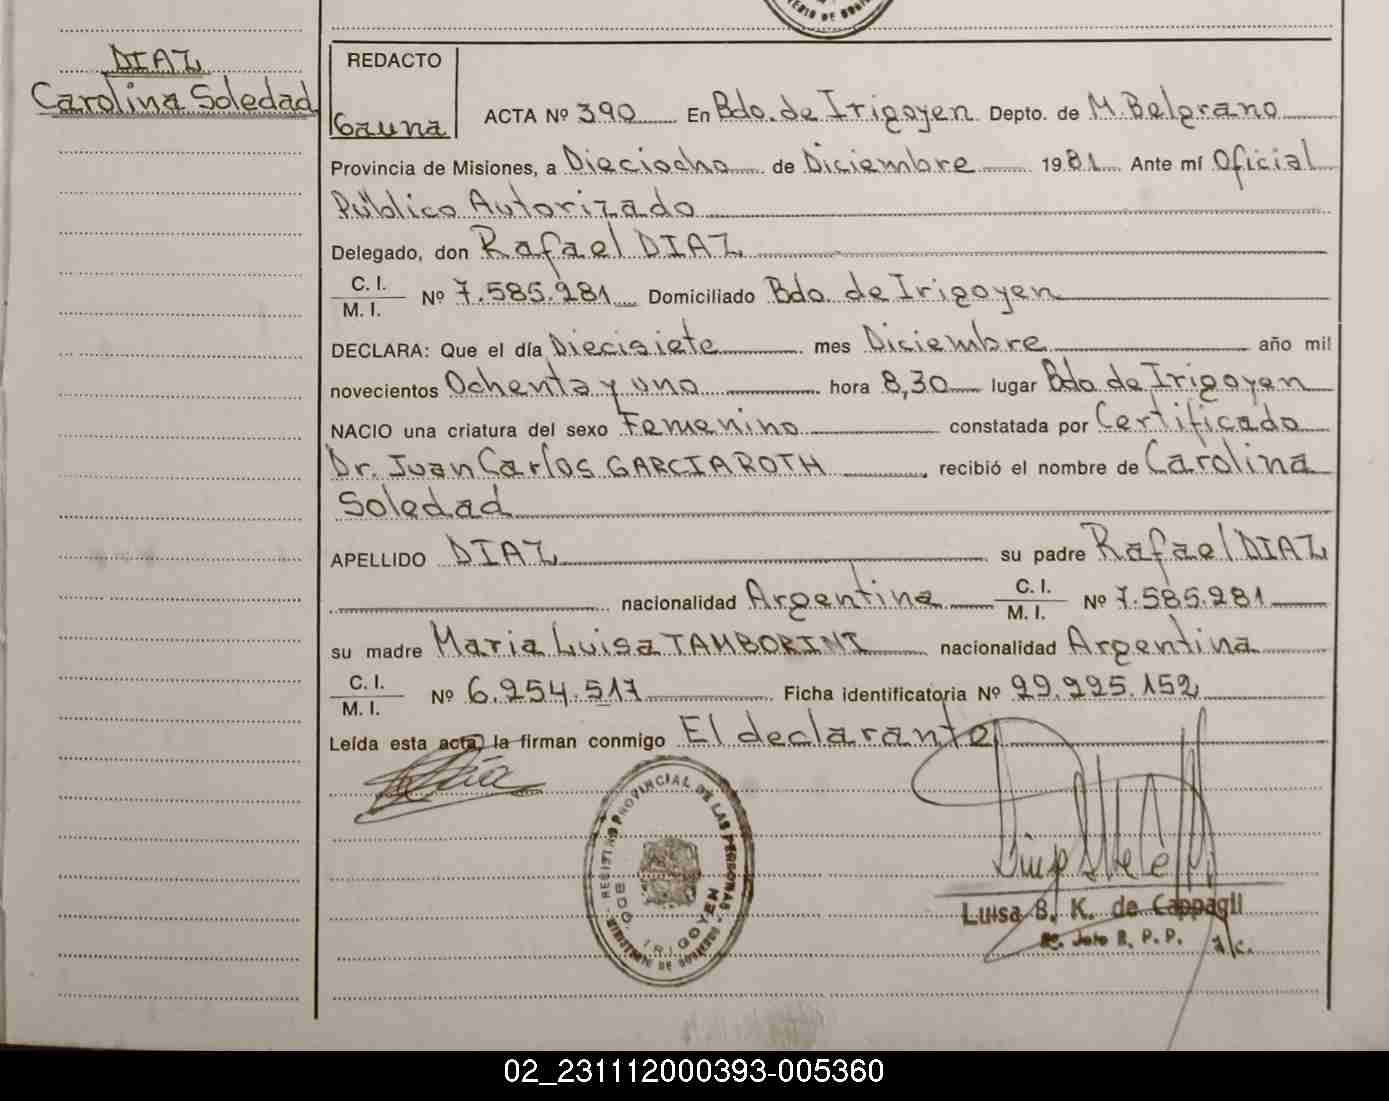 MINISTERIO DE GOBIERNO
DIAZ
Carolina Soledad
REDACTO
Gauna
ACTA Nº 390 En Bdo. de Irigoyen Depto. de M. Belgrano
Provincia de Misiones, a Dieciocho de Diciembre 1981 Ante mí Oficial
Público Autorizado
Delegado, don Rafael DIAZ
C. I.
M. I. Nº 7.585.281 Domiciliado Bdo. de Irigoyen
DECLARA: Que el día Diecisiete mes Diciembre año mil
novecientos Ochenta y uno hora 8,30 lugar Bdo. de Irigoyen
NACIO una criatura del sexo Femenino constatada por Certificado
Dr. Juan Carlos GARCIA ROTH recibió el nombre de Carolina
Soledad
APELLIDO DIAZ su padre Rafael DIAZ
nacionalidad Argentina C. I.
M. I. Nº 7.585.281
su madre Maria Luisa TAMBORINI nacionalidad Argentina
C. I.
M. I. Nº 6.254.517 Ficha identificatoria Nº 29.225.152
Leída esta acta, la firman conmigo El declarante
REGISTRO PROVINCIAL DE LAS PERSONAS
MINISTERIO DE GOBIERNO
BDO. IRIGOYEN
Luisa B. K. de Cappagli
Jefe R. P. P. a/c.
02_231112000393-005360